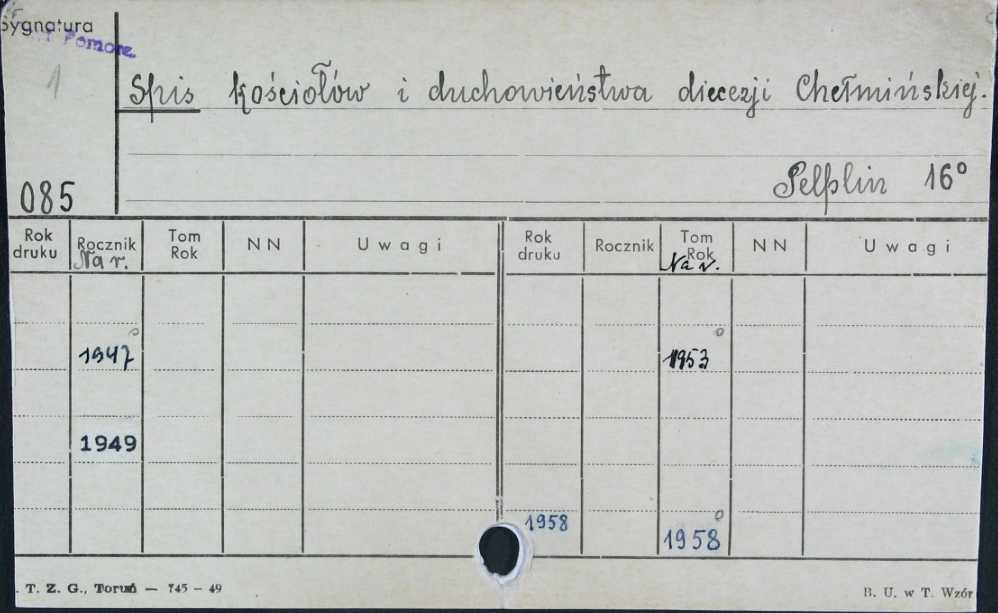 Sygnatura
Pomorz.
1
Spis kościołów i duchowieństwa diecezji Chełmińskiej.
Pelplin 16°
085
Rok druku Rocznik Tom Rok NN Uwagi Rok druku Rocznik Tom Rok NN Uwagi
Na r. Na r.
1947 1953
1949
1958 1958
. T. Z. G., Toruń — 745 – 49 B. U. w T. Wzór